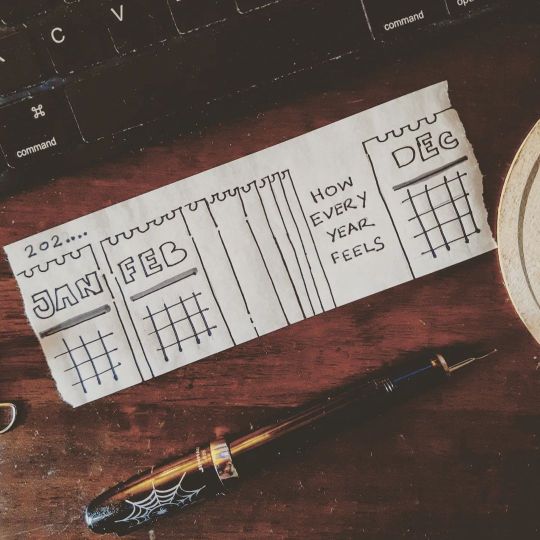 C
V
command
⌘
command
202....
JAN
FEB
HOW
EVERY
YEAR
FEELS
DEC